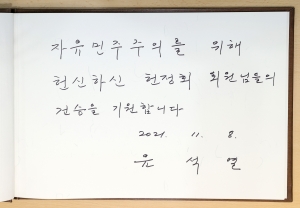 자유민주주의를 위해
헌신하신 헌정회 회원님들의
건승을 기원합니다
2021. 11. 8.
윤 석 열